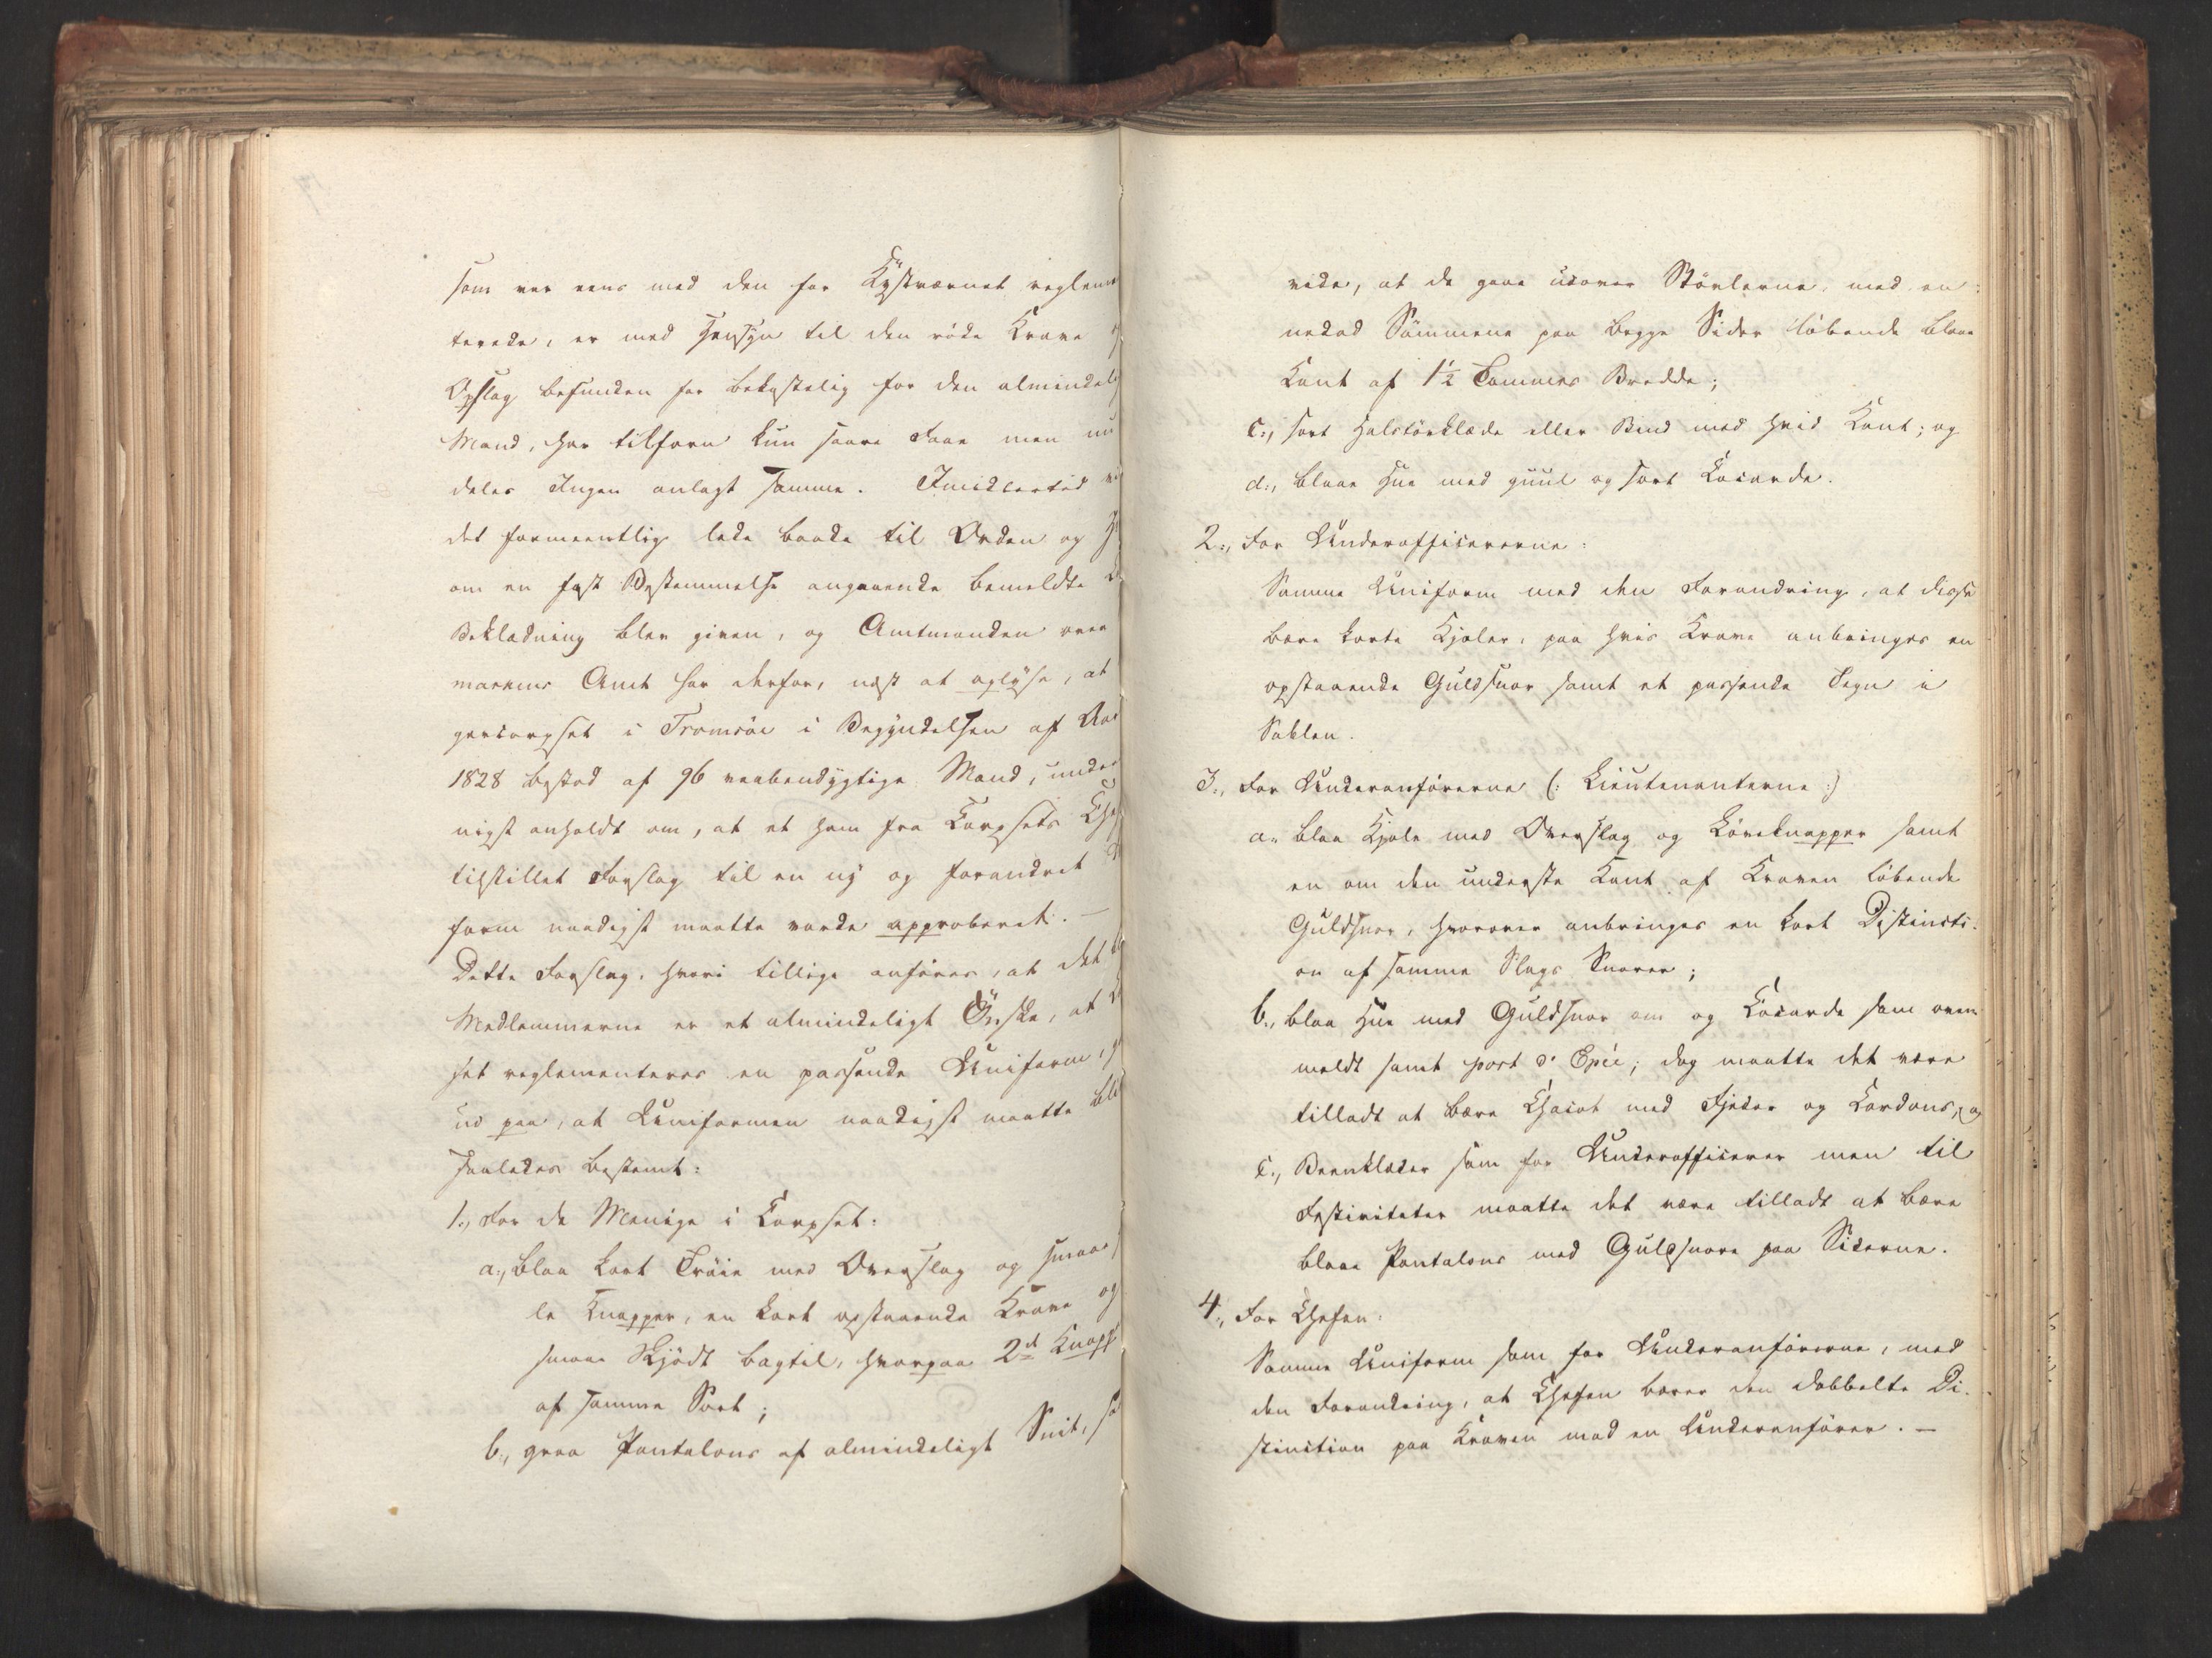 som var eens med den for Kystværnet reglem
terede, er med Hensyn til den röde Krave
Opslag befunden for bekostelig for den almindel
Mand, har tilforn kun saare Faae men nu
deles Ingen anlagt samme. Imidlertid
det formeentlig lede baade til Orden og
om en fast Bestemmelse angaaende bemeldte
Beklædning blev given, og Amtmanden over
markens Amt har derfor, næst at oplyse, at
gercorpset i Tromsöe i Begyndelsen af Aar
1828 bestod af 96 vaabendygtige Mand, under
nigst anholdt om, at et ham fra Corpsets Chef
tilstillet Forslag til en ny og forandret
form naadigst maatte vorde approberet. —
Dette Forslag, hvori tillige anföres, at det
Medlemmerne er et almindeligt Önske, at
set reglementeres en passende Uniform,
ud paa, at Uniformen naadigst maatte bli
saaledes bestemt:
1., For de Menige i Corpset:
a., blaa kort Tröie med Overslag og smaa
le Knapper, en kort opstaaende Krave og
smaa Skjödt bagtil, hvorpaa 2de Knapp
af samme Sort;
b., graa Pantalons af almindeligt Snit, sa
vide, at de gaae udover Stövlerne, med en
nedad Sömmene paa begge Sider löbende blaa
Kant af 1½ Tommes Bredde;
c., sort Halstörklæde eller Bind med hvid Kant; og
d., blaae Hue med guul og sort Cocarde.
2., For Underofficererne:
Samme Uniform med den Forandring, at disse
bære korte Kjoler, paa hvis Krave anbringes en
opstaaende Guldsnor samt et passende Tegn i
Sablen.
3., For Underanförerne (: Lieutenanterne :)
a., blaa Kjole med Overslag og Löveknapper samt
en om den underste Kant af Kraven löbende
Guldsnor, hvorover anbringes en kort Distincti-
on af samme Slags Snorer;
b., blaa Hue med Guldsnor om og Cocarde som oven
meldt samt port d' Epée; dog maatte det være
tilladt at bære Chacot med Fjeder og Cordons; og
c., Beenklæder som for Underofficerer men til
Festiviteter maatte det være tilladt at bære
blaae Pantalons med Guldsnore paa Siderne.
4., For Chefen:
Samme Uniform som for Underanförerne, med
den Forandring, at Chefen bærer den dobbelte Di-
stinction paa Kraven mod en Underanförer. —